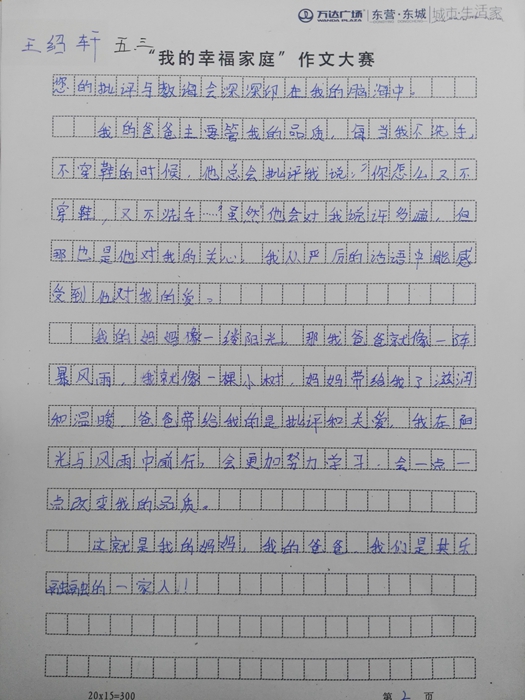 万达广场 WANDA PLAZA 东营·东城 城市·生活家
王绍轩 五.三
"我的幸福家庭"作文大赛
您的批评与教诲会深深印在我的脑海中。
我的爸爸主要管我的品质，每当我不洗手，
不穿鞋的时候，他总会批评我说："你怎么又不
穿鞋，又不洗手……"虽然他会对我说许多遍，但
那也是他对我的关心，我从严厉的话语中能感
受到他对我的爱。
我的妈妈像一缕阳光，那我爸爸就像一阵
暴风雨，我就像一棵小树，妈妈带给我了滋润
和温暖，爸爸带给我的是批评和关爱，我在阳
光与风雨中前行，会更加努力学习，会一点一
点改变我的品质。
这就是我的妈妈，我的爸爸，我们是其乐
融融的一家人！
20x15=300
第2页